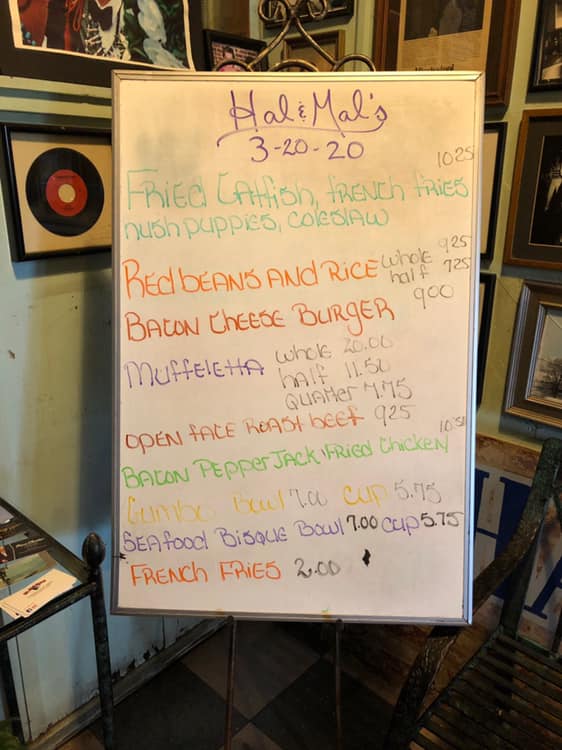 Hal & Mal's
3-20-20
Fried Catfish, french fries 10.25
hushpuppies, coleslaw
Red beans and Rice whole 9.25
half 7.25
Bacon Cheese Burger 9.00
Muffeletta whole 20.00
half 11.50
Quarter 7.75
Open face Roast beef 9.25
Bacon Pepper Jack Fried Chicken
Gumbo Bowl 7.00 Cup 5.75
Seafood Bisque Bowl 7.00 cup 5.75
French Fries 2.00